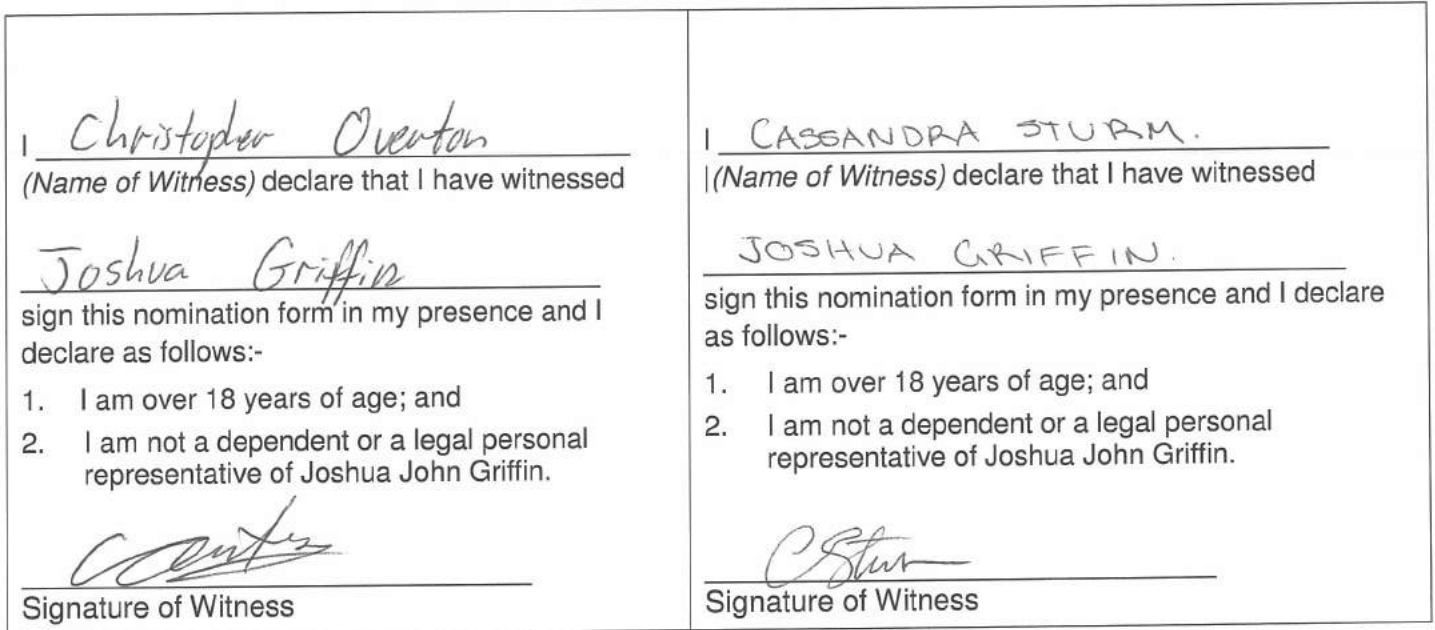 I Christopher Overton
(Name of Witness) declare that I have witnessed
Joshua Griffin
sign this nomination form in my presence and I
declare as follows:-
1. I am over 18 years of age; and
2. I am not a dependent or a legal personal
representative of Joshua John Griffin.
Signature of Witness
I CASSANDRA STURM.
(Name of Witness) declare that I have witnessed
JOSHUA GRIFFIN.
sign this nomination form in my presence and I declare
as follows:-
1. I am over 18 years of age; and
2. I am not a dependent or a legal personal
representative of Joshua John Griffin.
CSturm
Signature of Witness